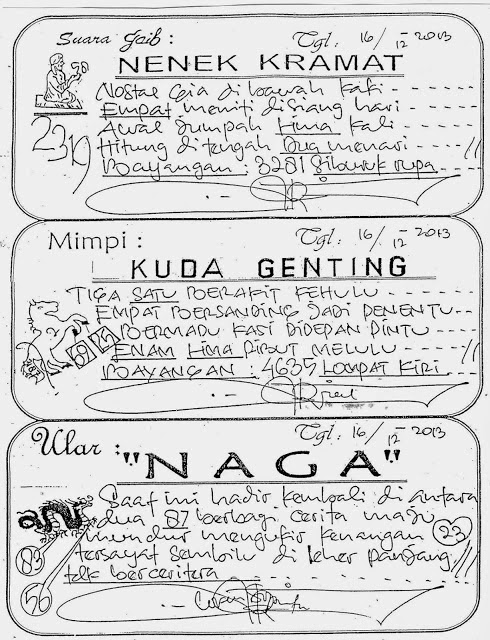 Suara Gaib : Tgl. 16/12-2013
NENEK KRAMAT
Nostalgia dibawah kaki
Empat meniti disiang hari
Awal Sumpah Lima kali
Hitung ditengah Dua menari
Bayangan : 3281 Siburuk rupa
Mimpi : Tgl. 16/12-2013
KUDA GENTING
TIGA SATU BERAKIT KEHULU
EMPAT BERSANDING JADI PENENTU
BERMADU KASI DIDEPAN PINTU
ENAM LIMA RIBUT MELULU
BAYANGAN : 4635 LOMPAT KIRI
Ular : Tgl. 16/12-2013
"NAGA"
Saat ini hadir kembali di antara
dua 87 berbagi cerita maju
mundur mengukir kenangan 23
tersayat sembilu di leher panjang
tdk berceritera
83
56